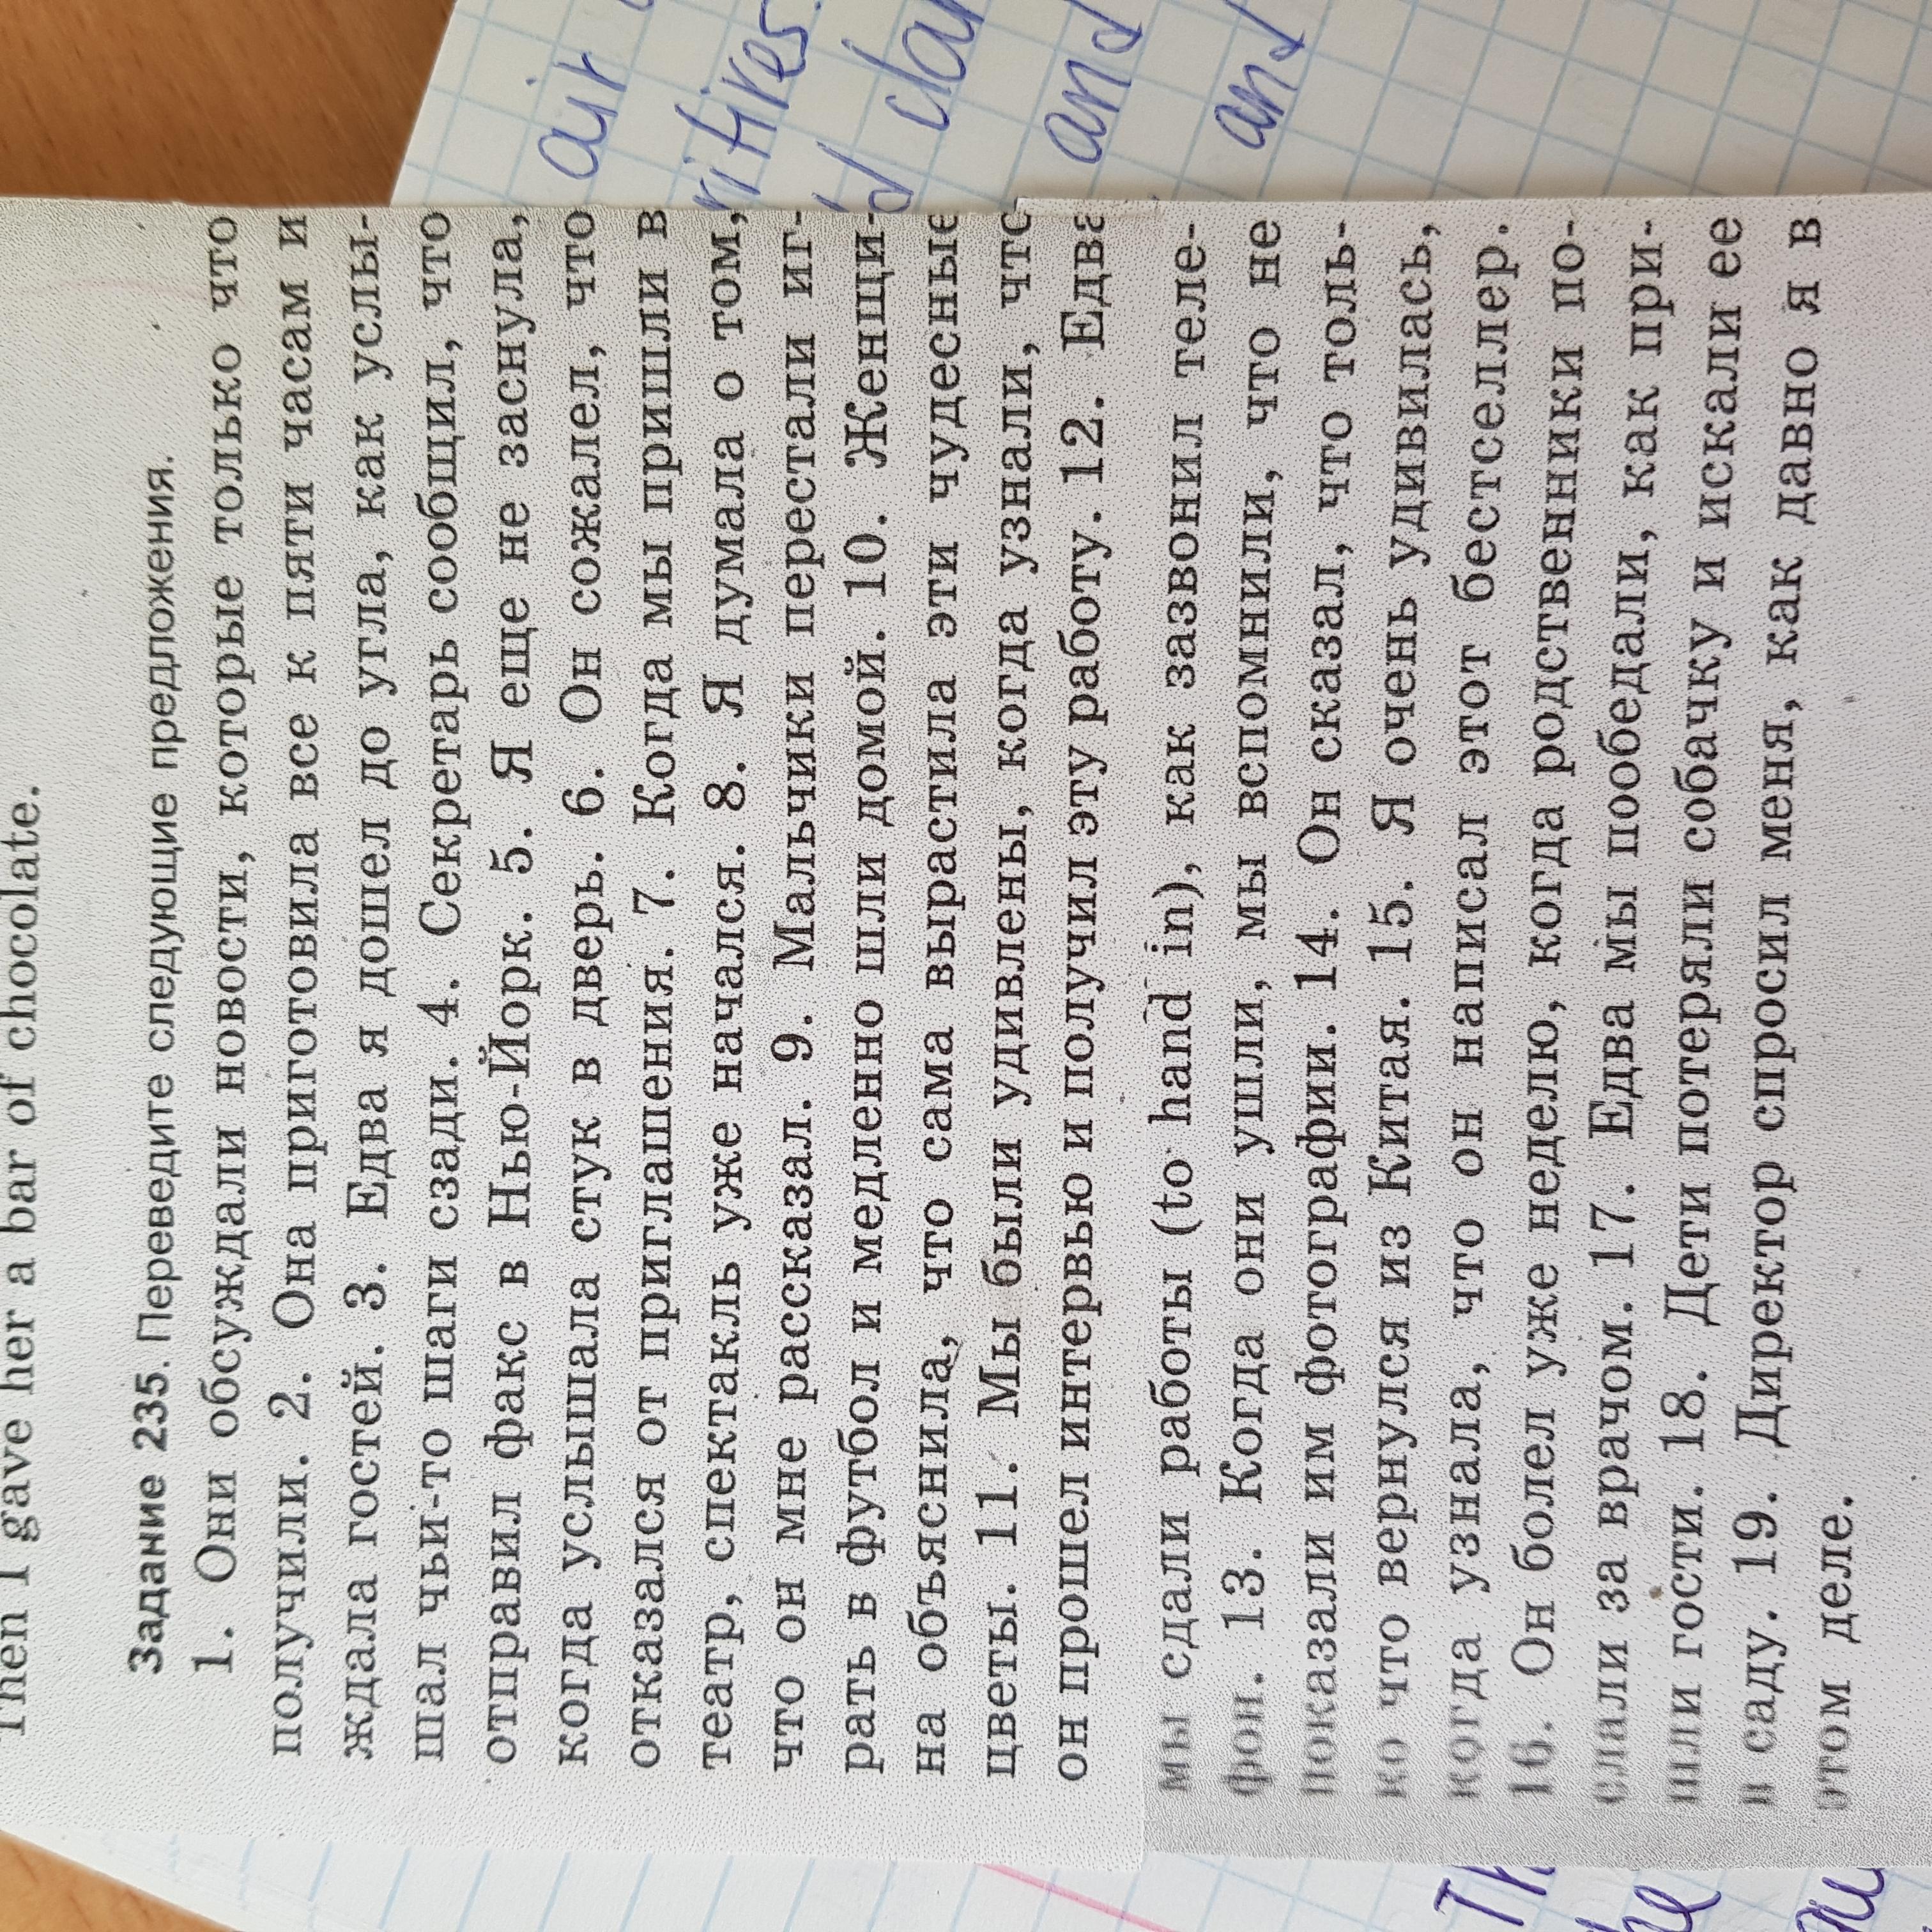 Then I gave her a bar of chocolate.
Задание 235. Переведите следующие предложения.
1. Они обсуждали новости, которые только что
получили. 2. Она приготовила все к пяти часам и
ждала гостей. 3. Едва я дошел до угла, как услы-
шал чьи-то шаги сзади. 4. Секретарь сообщил, что
отправил факс в Нью-Йорк. 5. Я еще не заснула,
когда услышала стук в дверь. 6. Он сожалел, что
отказался от приглашения. 7. Когда мы пришли в
театр, спектакль уже начался. 8. Я думала о том,
что он мне рассказал. 9. Мальчики перестали иг-
рать в футбол и медленно шли домой. 10. Женщи-
на объяснила, что сама вырастила эти чудесные
цветы. 11. Мы были удивлены, когда узнали, что
он прошел интервью и получил эту работу. 12. Едва
мы сдали работы (to hand in), как зазвонил теле-
фон. 13. Когда они ушли, мы вспомнили, что не
показали им фотографии. 14. Он сказал, что толь-
ко что вернулся из Китая. 15. Я очень удивилась,
когда узнала, что он написал этот бестселлер.
16. Он болел уже неделю, когда родственники по-
слали за врачом. 17. Едва мы пообедали, как при-
шли гости. 18. Дети потеряли собачку и искали ее
в саду. 19. Директор спросил меня, как давно я в
этом деле.
air
and
and